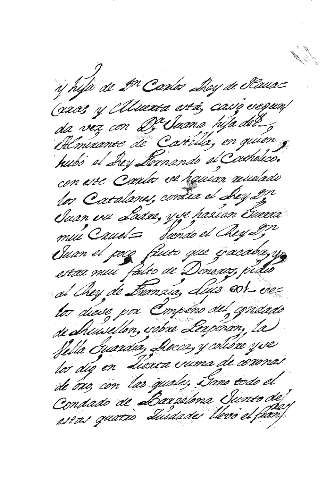 y hija de Dn. Carlos Rey de Nava=
rra, y Muerta esta, casò segun
da vez con Da. Juana hija del
Almirante de Castilla, en quien
hubó el Rey Fernando el Catholico,
con este Carlos se havian aunado
los Catalanes, contra el Rey Dn
Juan su Padre, y se hazian Guerra
mui Cruel= Viendo el Rey Dn
Juan el poco fruto que sacaba, y
estar mui falto de Dineros, pidio
al Rey de Francia, Luis XI= se
los diese, por Empeño del Condado
de Ruisellon, sobre Perpiñan, la
Bella Guardia, y Colibre y se
los dió en Cierta suma de coronas
de oro, con las quales, tomo todo el
Condado de Barzelona Junto de
estas quatro Ciudades llevó el fran